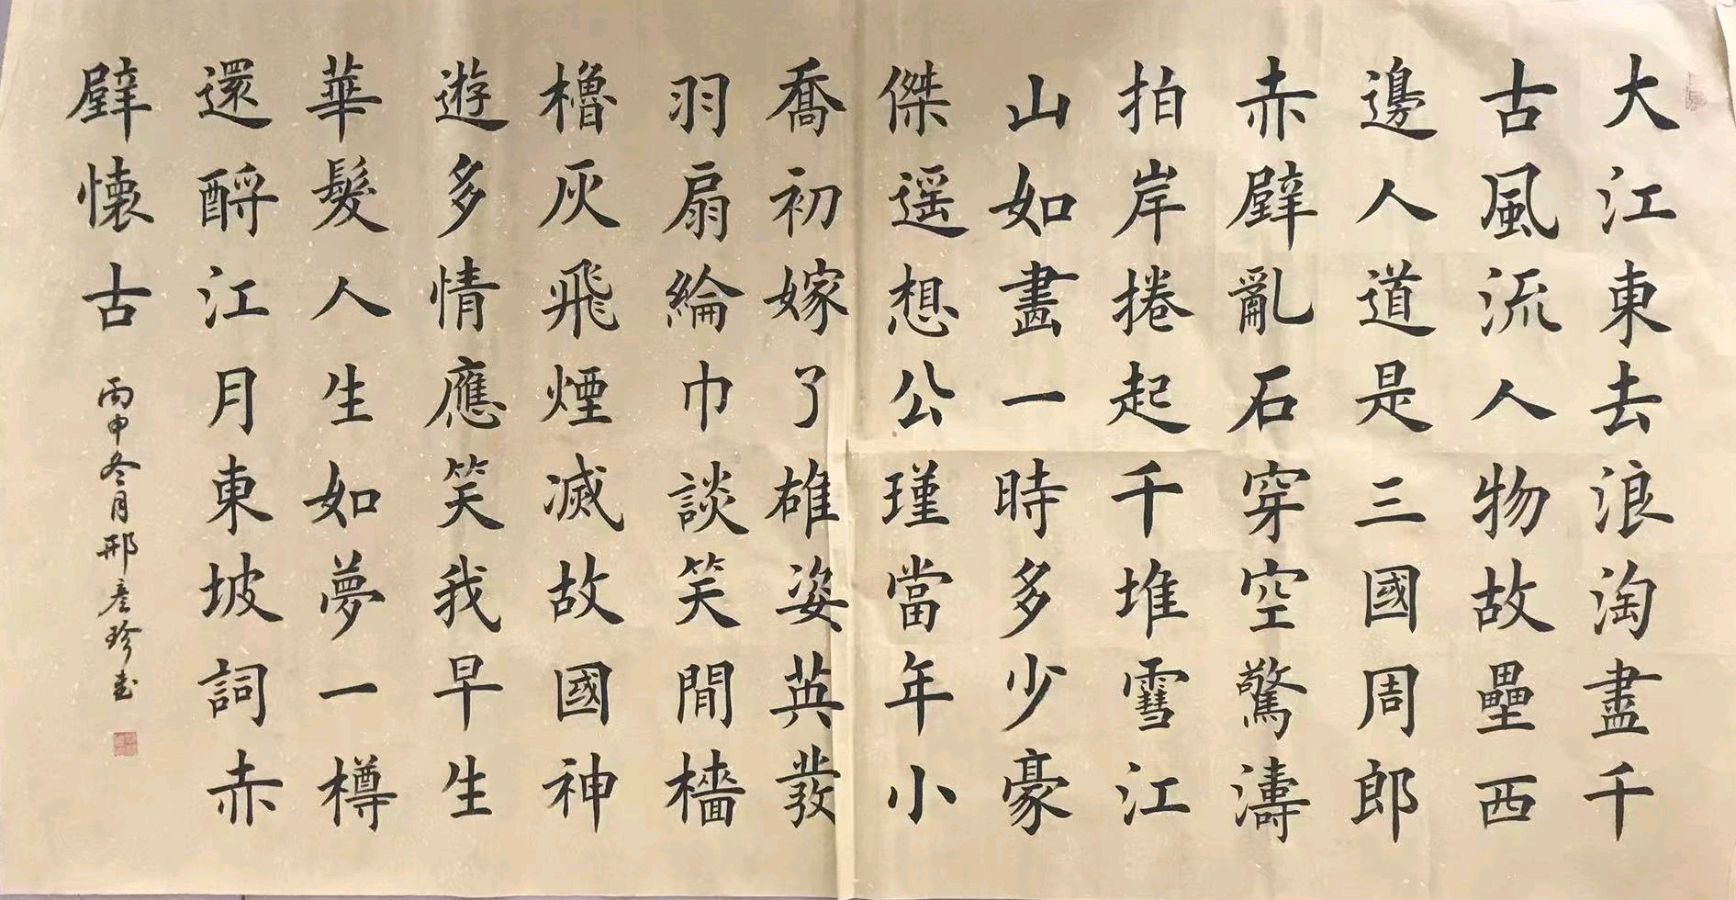 大江東去浪淘盡千
古風流人物故壘西
邊人道是三國周郎
赤壁亂石穿空驚濤
拍岸捲起千堆雪江
山如畫一時多少豪
傑遥想公瑾當年小
喬初嫁了雄姿英發
羽扇綸巾談笑間檣
櫓灰飛煙滅故國神
遊多情應笑我早生
華髮人生如夢一樽
還酹江月東坡詞赤
壁懷古
丙申冬月邢彦珍書